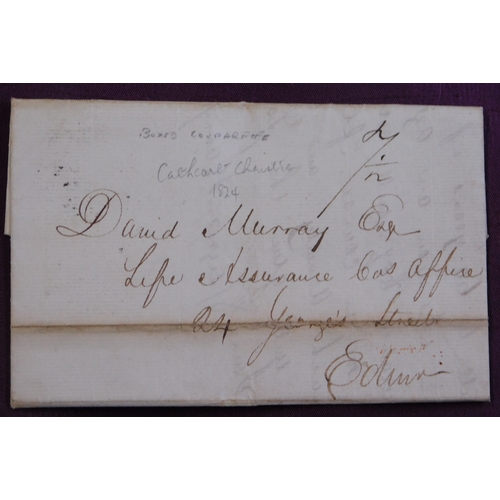 BOXED
Cathcart Christie
1824
1/2
David Murray Esq
Life Assurance Cos Office
24 George's Street
Edinr